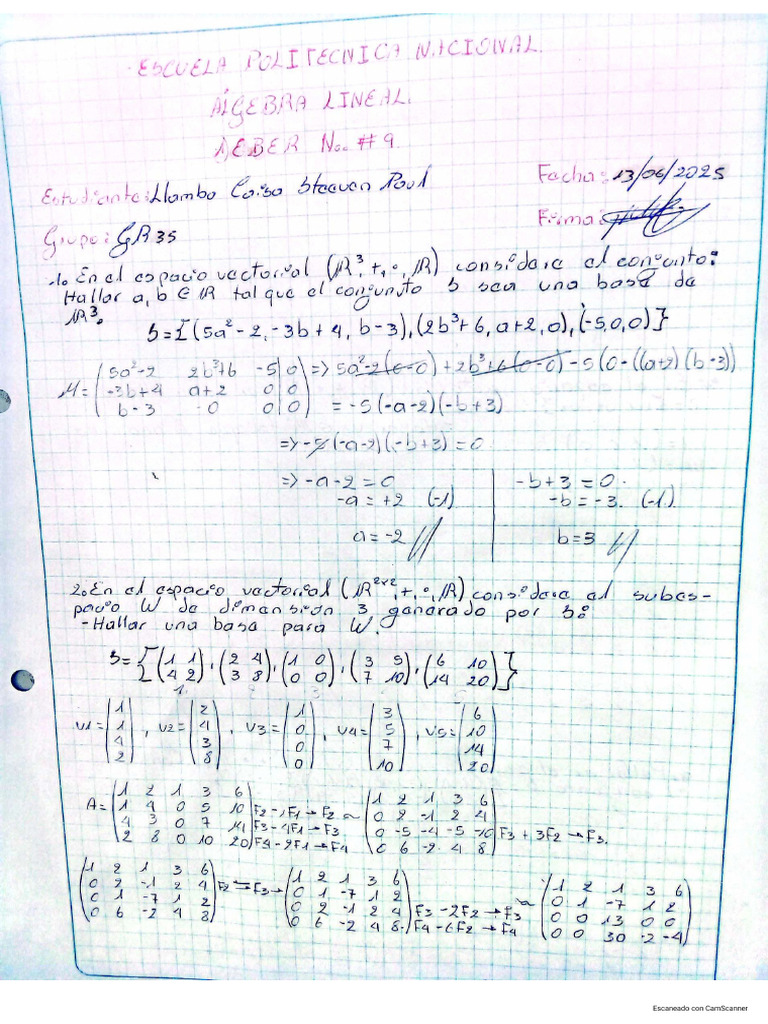 ESCUELA POLITECNICA NACIONAL.
ÁLGEBRA LINEAL.
DEBER No. #9
Estudiante: Llambo Caisa Steeven Paul
Fecha: 13/06/2025
Firma:
Grupo: GR35
1. En el espacio vectorial (ℝ³, +, ·, ℝ) considere el conjunto:
Hallar a, b ∈ ℝ tal que el conjunto S sea una base de
ℝ³.
S = {(5a²-2, -3b+4, b-3), (2b³+6, a+2, 0), (-5,0,0)}
M = (5a²-2 2b³+6 -5 | 0) => 5a²-2(0-0) + 2b³+6(0-0) - 5(0-((a+2)(b-3))
(-3b+4 a+2 0 | 0)
(b-3 0 0 | 0) = -5(-a-2)(-b+3)
=> -5(-a-2)(-b+3) = 0
=> -a-2 = 0 | -b+3 = 0
-a = +2 (-1) | -b = -3. (-1)
a = -2 // | b = 3 //
2. En el espacio vectorial (ℝ²ˣ², +, ·, ℝ) considere el subes-
pacio W de dimensión 3 generado por S:
- Hallar una base para W.
S = {(1 1; 4 2), (2 4; 3 8), (1 0; 0 0), (3 5; 7 10), (6 10; 14 20)}
V1 = (1 1 4 2), V2 = (2 4 3 8), V3 = (1 0 0 0), V4 = (3 5 7 10), V5 = (6 10 14 20)
A = (1 2 1 3 6) ~ (1 2 1 3 6)
(1 4 0 5 10) F2-1F1→F2 (0 2 -1 2 4)
(4 3 0 7 14) F3-4F1→F3 (0 -5 -4 -5 -10) F3+3F2→F3.
(2 8 0 10 20) F4-2F1→F4 (0 6 -2 4 8)
(1 2 1 3 6) (1 2 1 3 6) ~ (1 2 1 3 6)
(0 2 -1 2 4) F2⇌F3→ (0 1 -7 1 2) (0 1 -7 1 2)
(0 1 -7 1 2) (0 2 -1 2 4) F3-2F2→F3 (0 0 13 0 0)
(0 6 -2 4 8) (0 6 -2 4 8) F4-6F2→F4 (0 0 30 -2 -4)
Escaneado con CamScanner